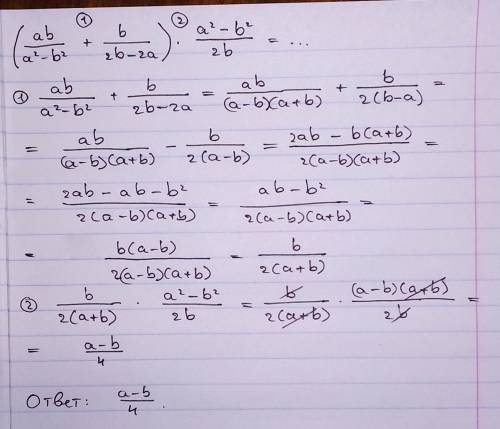 ① ②
(ab/(a²-b²) + b/(2b-2a)) · (a²-b²)/2b = ...
① ab/(a²-b²) + b/(2b-2a) = ab/((a-b)(a+b)) + b/(2(b-a)) =
= ab/((a-b)(a+b)) - b/(2(a-b)) = (2ab - b(a+b))/(2(a-b)(a+b)) =
= (2ab-ab-b²)/(2(a-b)(a+b)) = (ab-b²)/(2(a-b)(a+b)) =
= b(a-b)/(2(a-b)(a+b)) = b/(2(a+b))
② b/(2(a+b)) · (a²-b²)/2b = b/(2(a+b)) · (a-b)(a+b)/2b =
= (a-b)/4
Ответ: (a-b)/4.